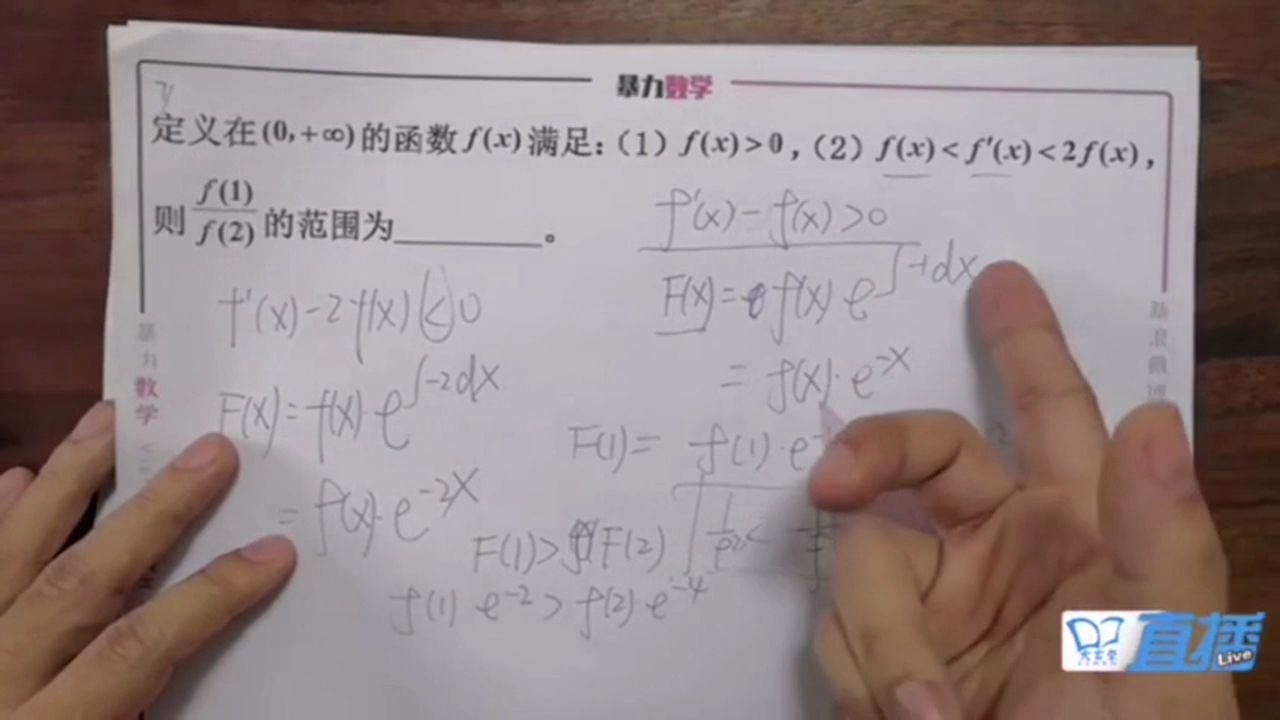 暴力数学
定义在(0,+∞)的函数f(x)满足:(1)f(x)>0,(2)f(x)<f'(x)<2f(x),
则 f(1)/f(2) 的范围为________。
f'(x)-f(x)>0
F(x)=f(x)e^∫-1dx
=f(x)·e^-x
F(1)=f(1)·e
f'(x)-2f(x)<0
F(x)=f(x)·e^∫-2dx
=f(x)·e^-2x
F(1)>F(2)
f(1)·e^-2>f(2)·e^-4
暴力
数学
直播
Live